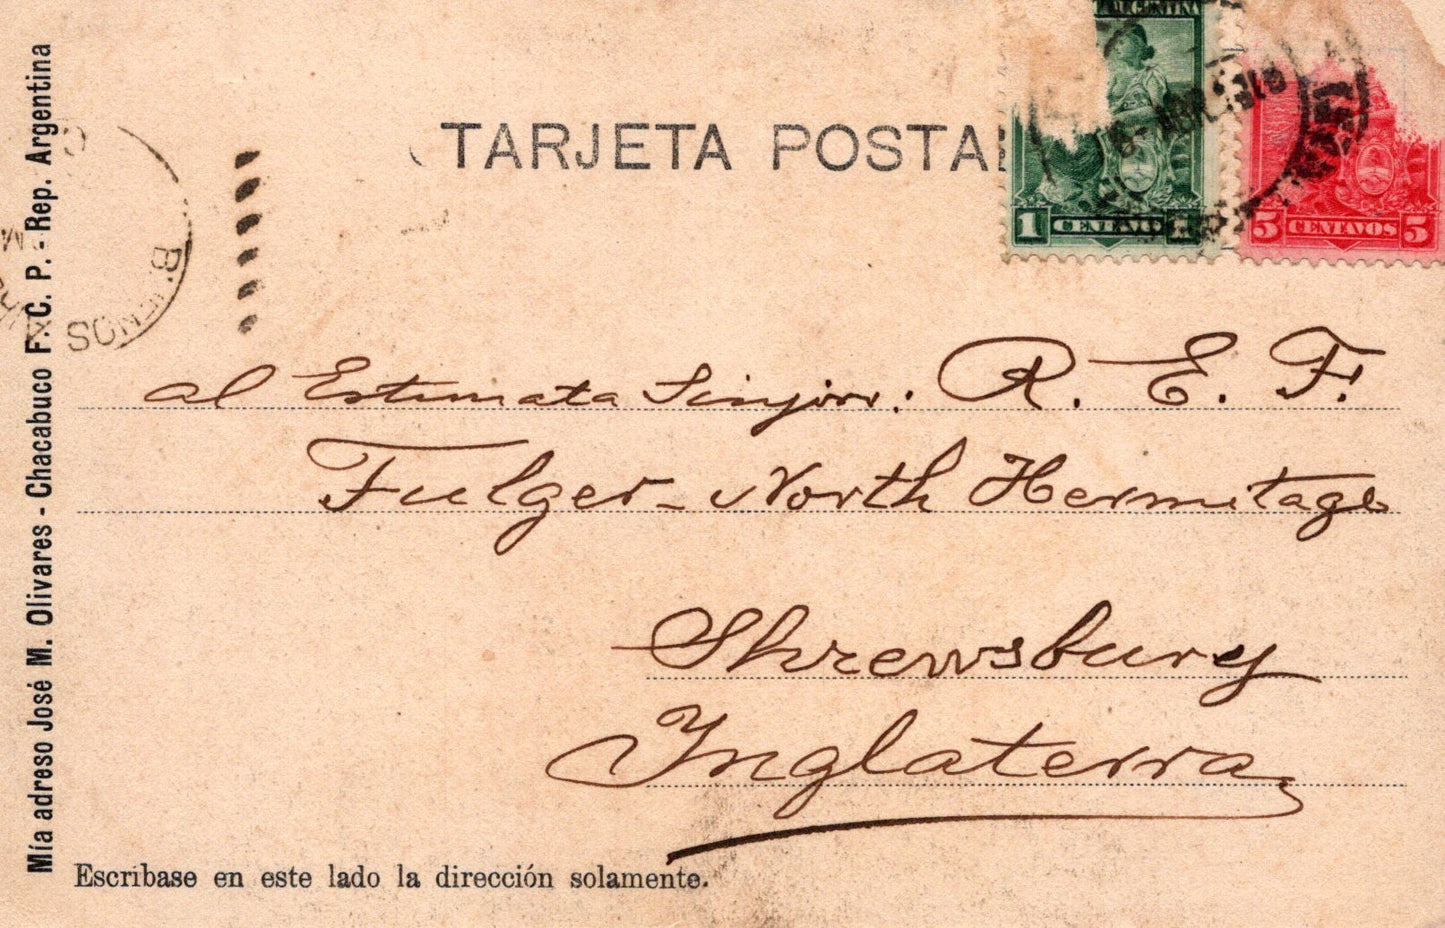 Mía adreso José M. Olivares - Chacabuco F. C. P. - Rep. Argentina
TARJETA POSTAL
ARGENTINA
1 CENTAVO
5 CENTAVOS 5
BUENOS
al Estimata Sinjoro: R. E. F.
Fulger - North Hermitage
Shrewsbury
Inglaterra
Escribase en este lado la dirección solamente.